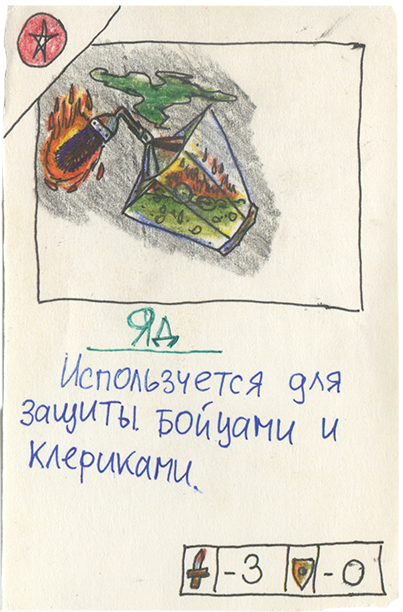 Яд
Используется для
защиты бойцами и
клериками.
-3 -0